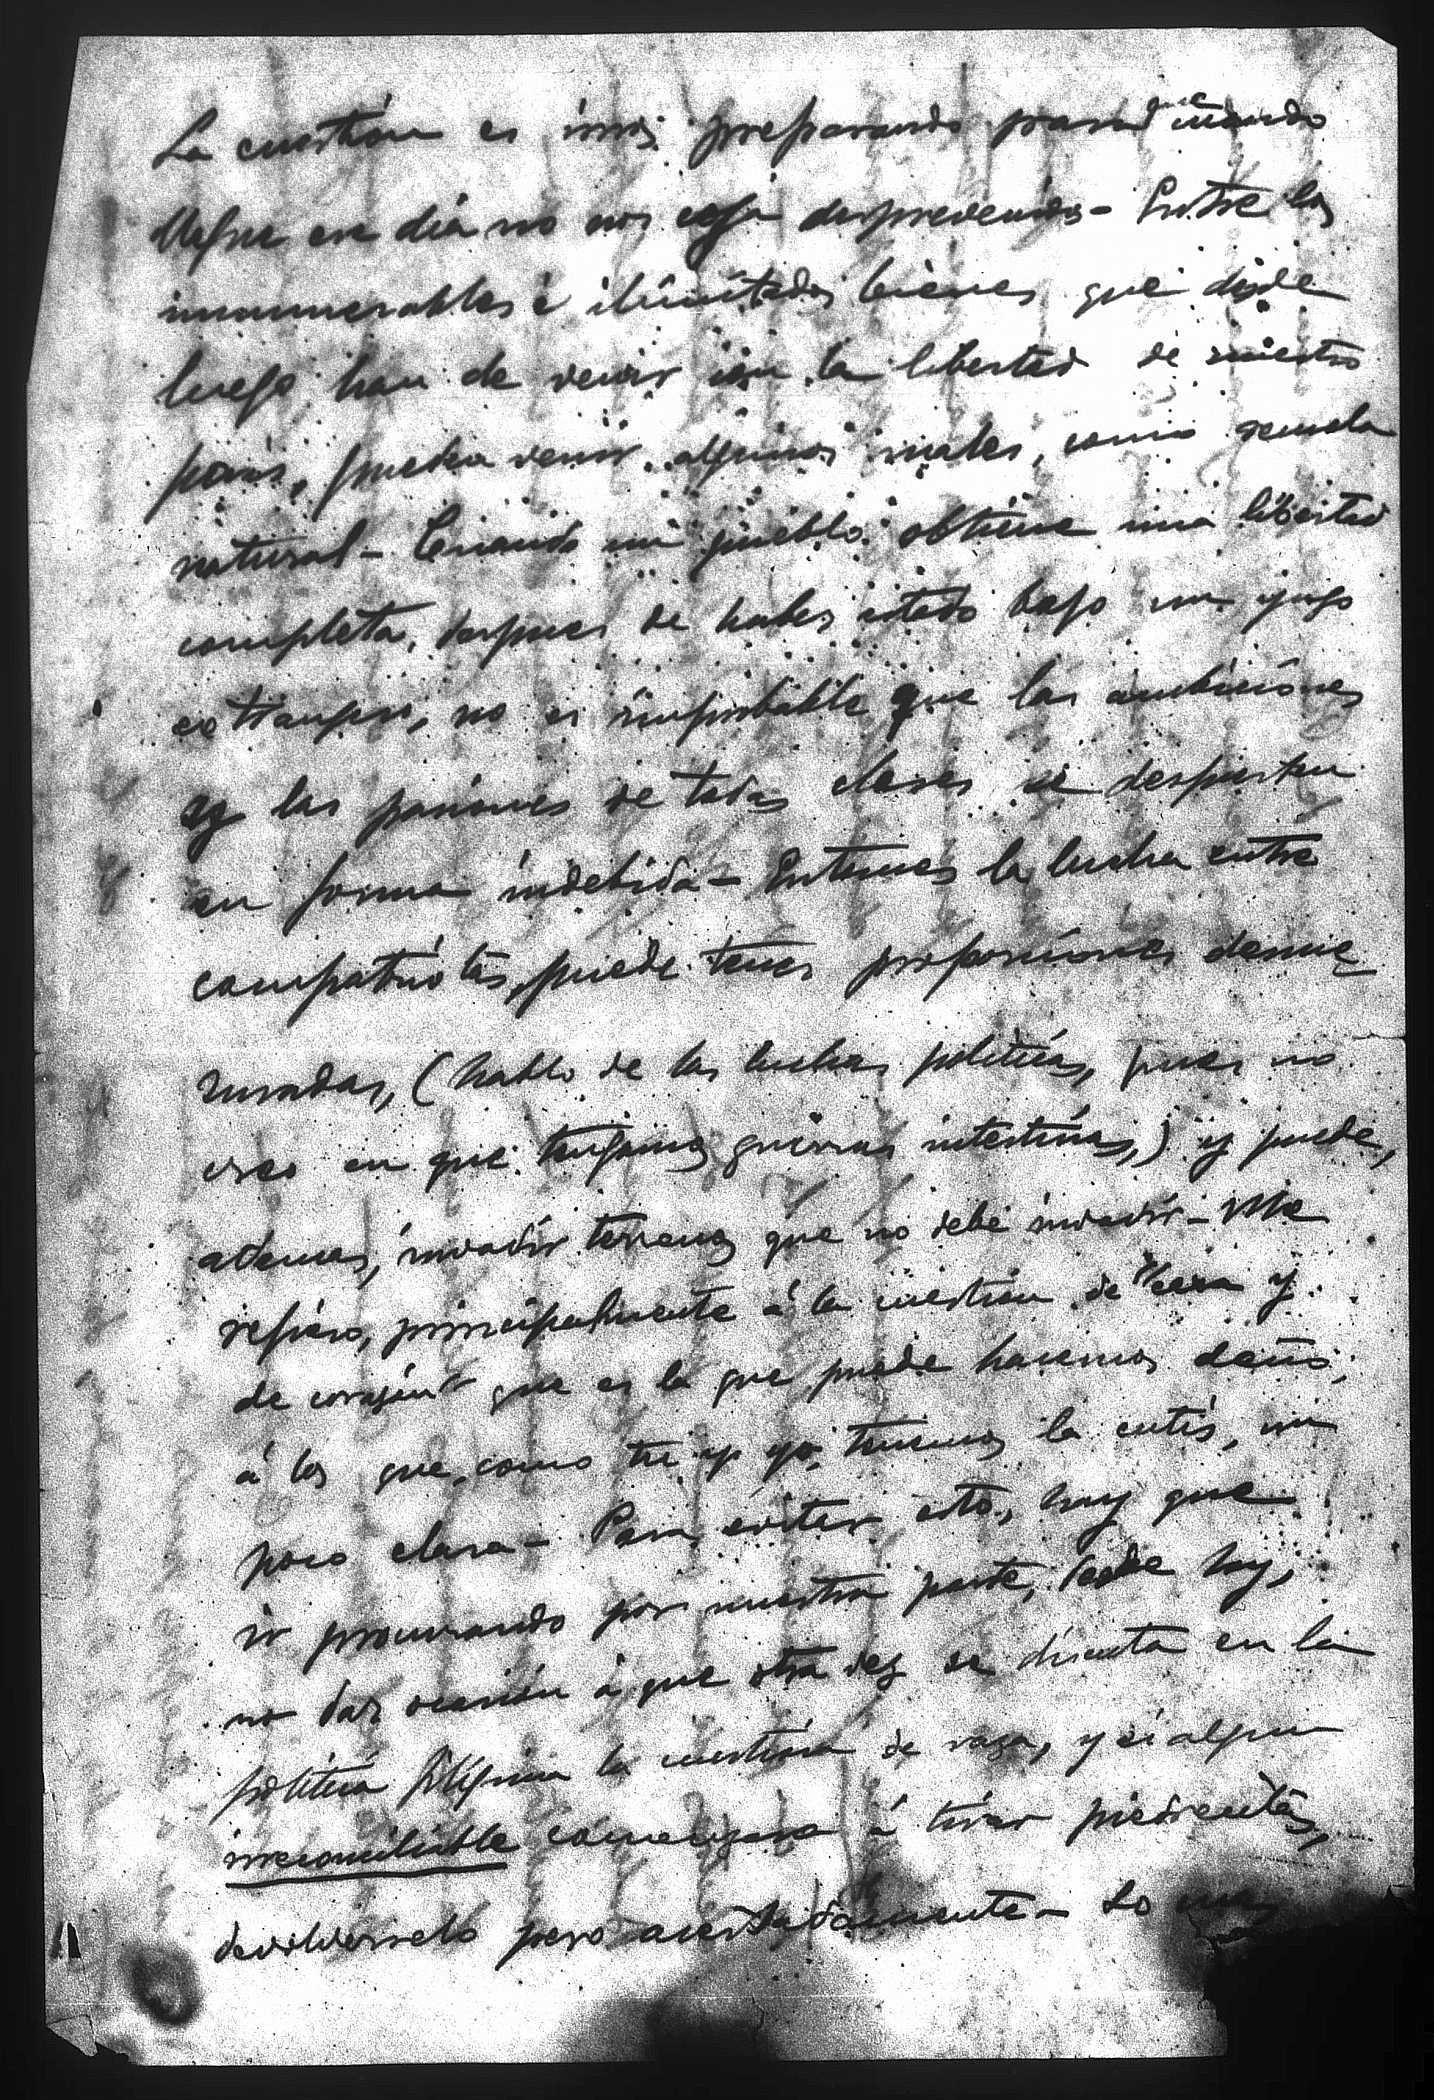 La cuestión es irnos preparando para que cuando
llegue ese día no nos coja desprevenidos - Entre los
innumerables é ilimitados bienes que desde
luego han de venir con la libertad de nuestro
país, pueden venir algunos males, como secuela
natural - Cuando un pueblo obtiene una libertad
completa, despues de haber estado bajo un yugo
extrangero, no es improbable que las ambiciones
y las pasiones de todas clases se despierten
en forma indebida - Entonces la lucha entre
compatriotas, puede tener proporciones desme
suradas, (hablo de las luchas políticas, pues no
creo en que tengamos guerras intestinas,) y puede,
ademas, invadir terrenos que no debe invadir - Me
refiero, principalmente á la cuestión de "cara y
de corazón" que es la que puede hacernos daño,
á los que, como tu y yo, tenemos la cutis, un
poco clara - Para evitar esto, hay que
ir procurando por nuestra parte, desde hoy,
no dar ocasión á que otra vez se discuta en la
política filipina la cuestión de raza, y si algun
irreconciliable comenzara á tirar piedrecitas,
devolverselo pero acertadamente - Lo